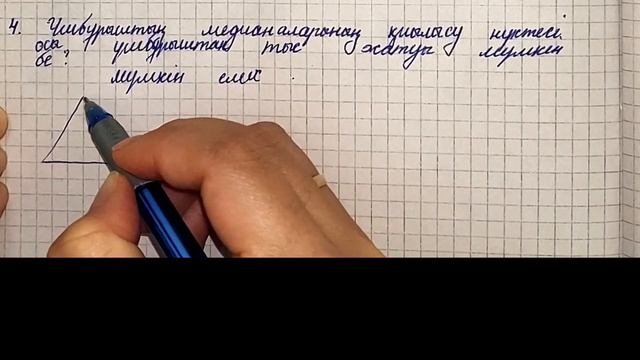 4. Үшбұрыштың медианаларының қиылысу нүктесі
осы үшбұрыштан тыс жатуы мүмкін
бе?
мүмкін емес.